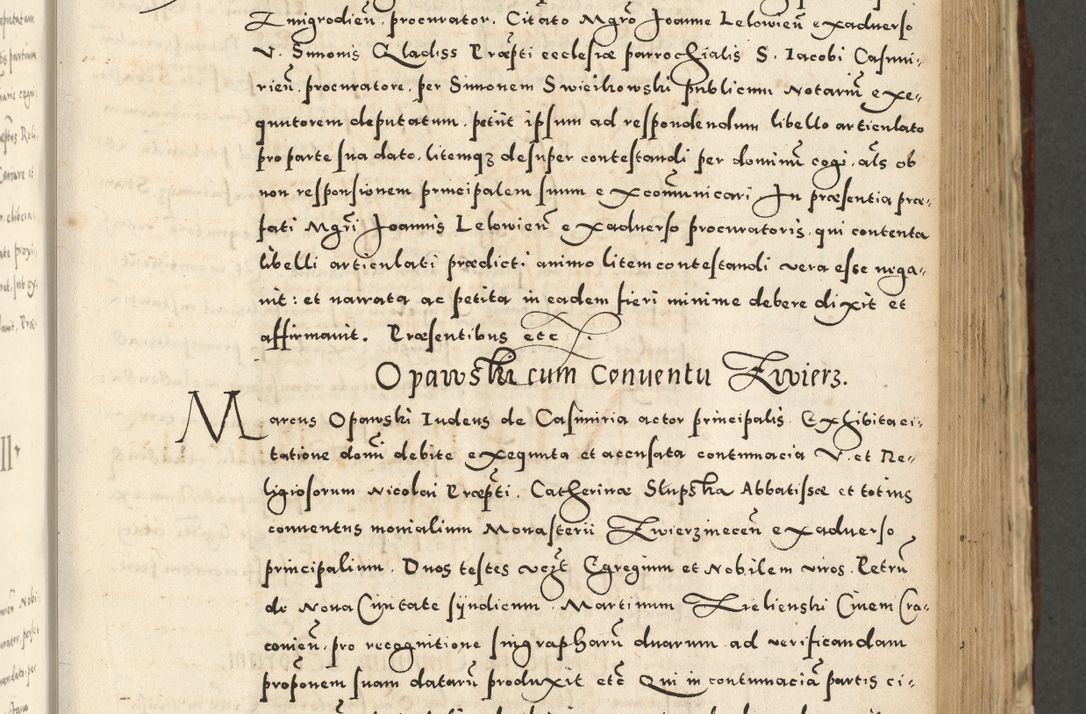 Zmigrodien̄, procurator. Citato Mgrō Joanne Lelowien̄ ex aduerso
V. Simonis Gladiss Præpti ecclesiæ parrochialis S. Iacobi Casimi-
rien̄, procuratore, per Simonem Swieikowski publicum Notariū exe-
quutorem deputatum, petiit ipsum ad respondendum libello articulato
pro parte sua dato, litemqz desuper contestandi per dominū cogi, als̄ ob
non responsionem principalem suum excom̄unicari In præsentia præ-
fati Mgrī Joannis Lelowien̄ ex aduerso procuratoris, qui contenta
libelli articulati prædicti animo litem contestandi vera esse nega-
uit: et narrata ac petita in eadem fieri minime debere dixit et
affirmauit. Præsentibus etc.
Opawski cum Conuentu Zwierz.
Marcus Opawski Iudeus de Casimiria actor principalis Exhibita ci-
tatione domī debite exequuta et accusata contumacia V. et Re-
ligiosorum Nicolai Præpti. Catherinæ Slupska Abbatissæ et totius
conuentus monialium Monasterii Zwierzinecen̄ ex aduerso
principalium. Duos testes vezt Egregium et Nobilem viros. Petrū
de Noua Ciuitate syndicum. Martinum Zielienski Ciuem Cra-
couien̄, pro recognitione singrapharū duarum ad verificandam
proponem suam datarū produxit etc̄ Qui in contumaciā partis ci-